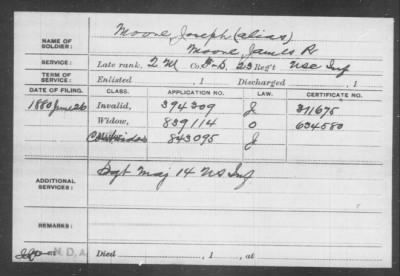 NAME OF SOLDIER: Moore, Joseph (alias)
Moore, James R
SERVICE: Late rank, 2 M Co. F-D. 23 Reg't USC Inf
TERM OF SERVICE: Enlisted , 1 Discharged , 1
DATE OF FILING. CLASS. APPLICATION NO. LAW. CERTIFICATE NO.
1880 June 26 Invalid, 394309 J 371675
Widow, 839114 O 634580
843095 J
ADDITIONAL SERVICES: Sgt Maj 14 US Inf
REMARKS:
N.D.A. Died , 1 , at